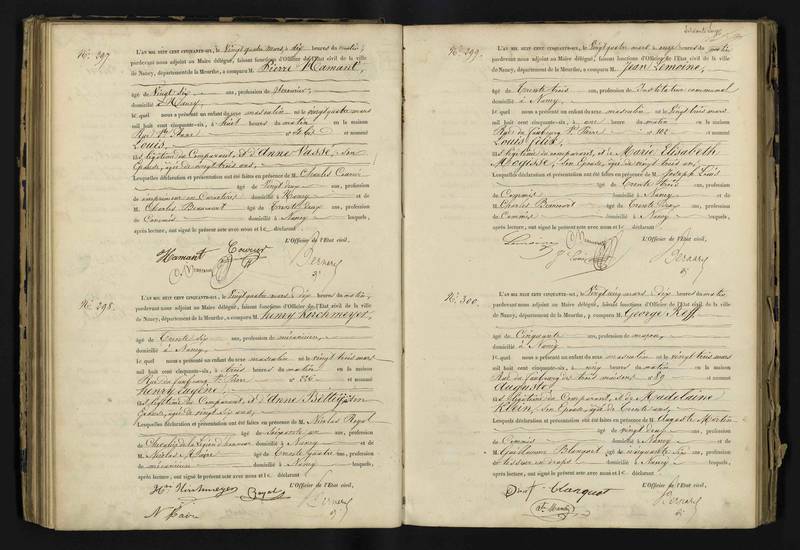 N.º 297
L'AN MIL HUIT CENT CINQUANTE-SIX, le Vingt quatre mars, à dix heures du matin,
pardevant nous adjoint au Maire délégué, faisant fonctions d'Officier de l'Etat civil de la ville
de Nancy, département de la Meurthe, a comparu M. Pierre Hamant,
âgé de Vingt six ans, profession de
domicilié à Nancy,
lequel nous a présenté un enfant du sexe masculin né le vingt quatre mars
mil huit cent cinquante-six, à huit heures du matin en la maison
Rue et nommé
Louis,
fils légitime du Comparant, et d'Anne Vasse, son
épouse, âgée de vingt trois ans,
Lesquelles déclaration et présentation ont été faites en présence de M. Charles
âgé de Vingt deux ans, profession
de imprimeur en domicilié à Nancy et de
M. Charles Beaumont âgé de Trente deux ans, profession
de Commis domicilié à Nancy lesquels,
après lecture, ont signé le présent acte avec nous et le déclarant.
L'Officier de l'Etat civil,
Hamant
Bernard
N.º 298.
L'AN MIL HUIT CENT CINQUANTE-SIX, le Vingt quatre mars à dix heures du matin,
pardevant nous adjoint au Maire délégué, faisant fonctions d'Officier de l'Etat civil de la ville
de Nancy, département de la Meurthe, a comparu M. Henry Kirchmeyer,
âgé de Trente six ans, profession de mécanicien,
domicilié à Nancy,
lequel nous a présenté un enfant du sexe masculin né le vingt trois mars
mil huit cent cinquante-six, à trois heures du matin en la maison
Rue du faubourg St. Pierre et nommé
Henry Eugène,
fils légitime du Comparant, et d'Anne
épouse, âgée de vingt six ans,
Lesquelles déclaration et présentation ont été faites en présence de M. Nicolas Royal
âgé de Soixante ans, profession
de Chevalier de la Légion d'honneur domicilié à Nancy et de
M. Nicolas âgé de Trente quatre ans, profession
de mécanicien domicilié à Nancy lesquels,
après lecture, ont signé le présent acte avec nous et le déclarant.
L'Officier de l'Etat civil,
Hry Kirchmeyer Royal
Bernard
N.º 299.
L'AN MIL HUIT CENT CINQUANTE-SIX, le Vingt quatre mars à onze heures du matin
pardevant nous adjoint au Maire délégué, faisant fonctions d'Officier de l'Etat civil de la ville
de Nancy, département de la Meurthe, a comparu M. Jean Lemoine,
âgé de Trente trois ans, profession de Instituteur communal
domicilié à Nancy,
lequel nous a présenté un enfant du sexe masculin né le Vingt trois mars
mil huit cent cinquante-six, à onze heures du matin en la maison
Rue du faubourg St. Pierre nº 102 et nommé
Louis Félix,
fils légitime du comparant, et de Marie Elisabeth
son épouse, âgée de vingt trois ans,
Lesquelles déclaration et présentation ont été faites en présence de M. Joseph Louis
âgé de Trente trois ans, profession
de Commis domicilié à Nancy et de
M. Charles Beaumont âgé de Trente deux ans, profession
de Commis domicilié à Nancy lesquels,
après lecture, ont signé le présent acte avec nous et le déclarant.
L'Officier de l'Etat civil,
Lemoine
Bernard
N.º 300.
L'AN MIL HUIT CENT CINQUANTE-SIX, le Vingt cinq mars à dix heures du matin
pardevant nous adjoint au Maire délégué, faisant fonctions d'Officier de l'Etat civil de la ville
de Nancy, département de la Meurthe, a comparu M. George
âgé de Cinquante ans, profession de maçon,
domicilié à Nancy
lequel nous a présenté un enfant du sexe masculin né le vingt trois mars
mil huit cent cinquante-six, à cinq heures du matin en la maison
Rue du faubourg des trois maisons nº 89 et nommé
Auguste,
fils légitime du Comparant, et de Madelaine
Klein, son épouse, âgée de Trente ans,
Lesquelles déclaration et présentation ont été faites en présence de M. Auguste Martin
âgé de vingt deux ans, profession
de Commis domicilié à Nancy et de
M. Guillaume âgé de cinquante six ans, profession
de tisseur en draps domicilié à Nancy lesquels,
après lecture, ont signé le présent acte avec nous et le déclarant.
L'Officier de l'Etat civil,
Bernard